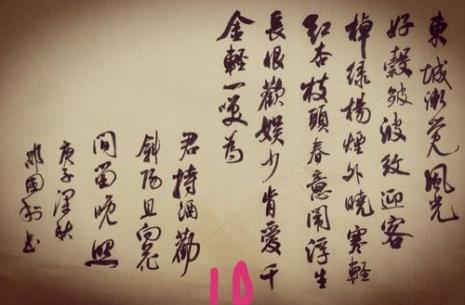 東城漸覺風光
好縠皺波紋迎客
棹綠楊煙外曉寒輕
紅杏枝頭春意鬧浮生
長恨歡娛少肯愛千
金輕一笑為
君持酒勸
斜陽且向花
間留晚照
庚子深秋
國书
10